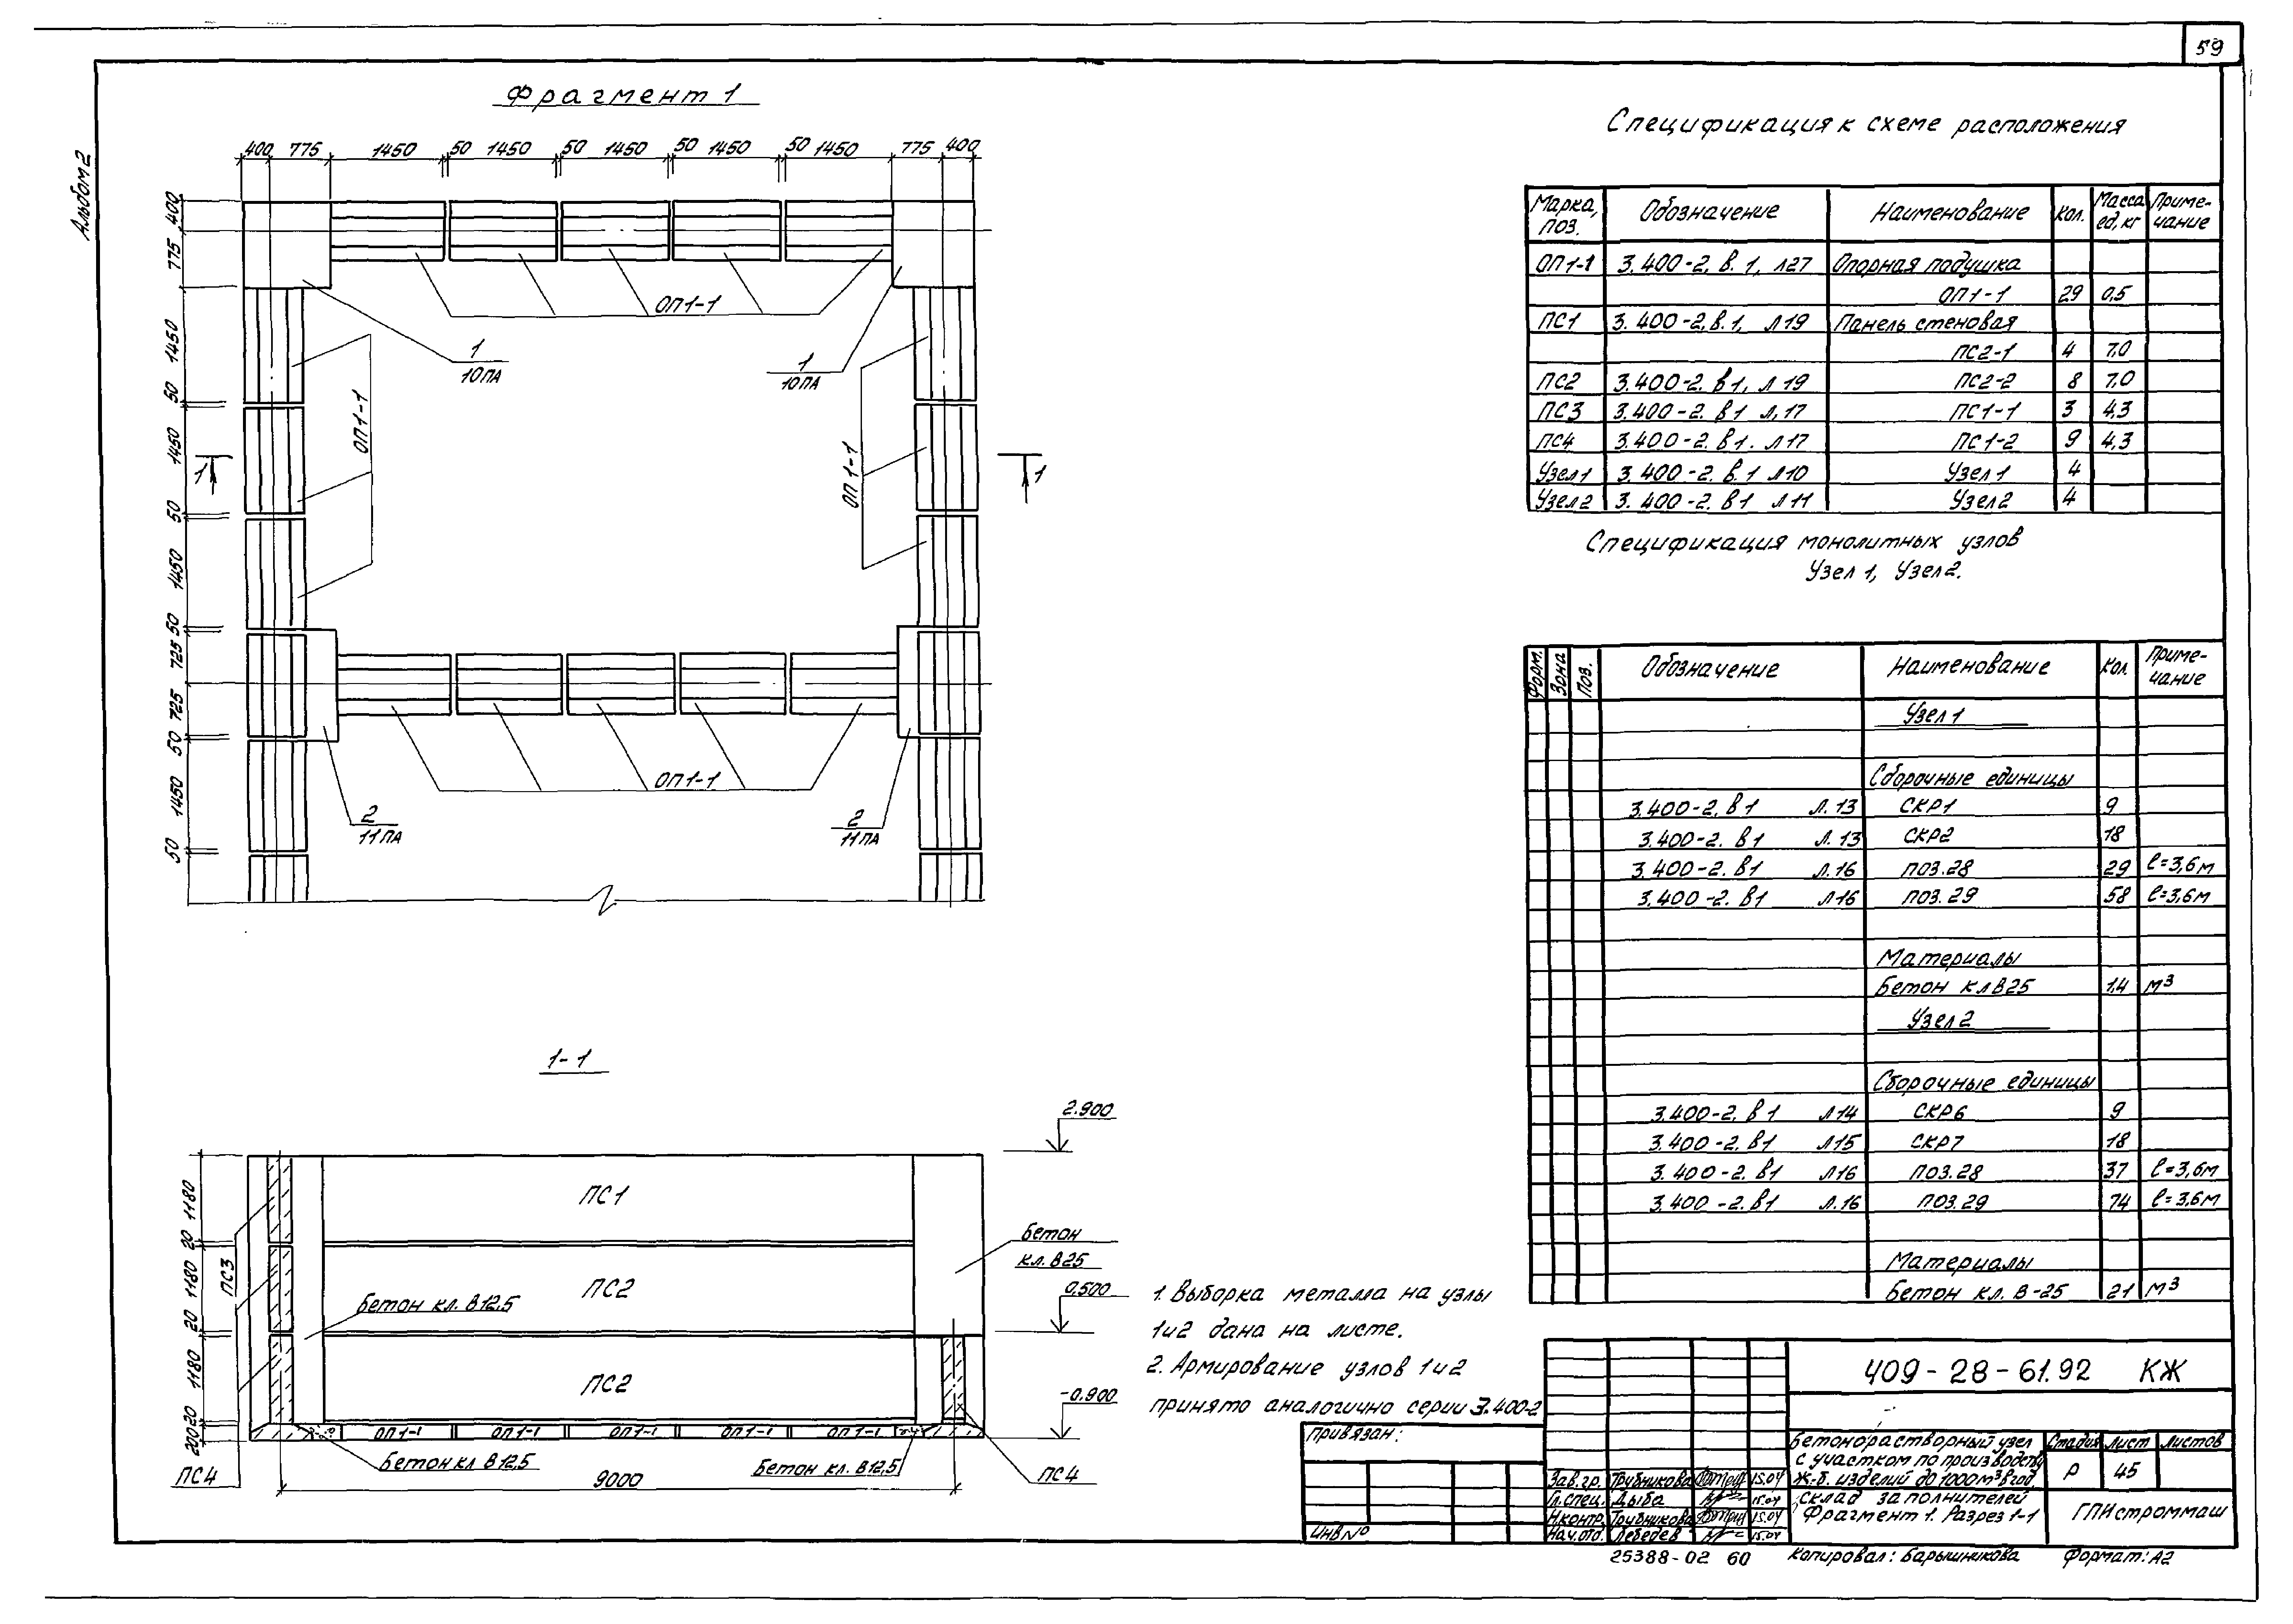 59
Альбом 2
Фрагмент 1
400 775 1450 50 1450 50 1450 50 1450 50 1450 775 400
400
775
1450
50
1450
50
1450
50
725
725
50
1450
50
ОП1-1
1
10ПА
1
10ПА
ОП1-1
ОП1-1
1
1
ОП1-1
2
11ПА
2
11ПА
1-1
2.900
0.500
-0.900
1180
20
1180
20
1180
20
200
ПС3
ПС4
ПС1
ПС2
ПС2
Бетон
кл. В25
Бетон кл. В12,5
ОП1-1 ОП1-1 ОП1-1 ОП1-1 ОП1-1
Бетон кл В12,5
Бетон кл. В12,5
ПС4
9000
1. Выборка металла на узлы
1и2 дана на листе.
2. Армирование узлов 1и2
принято аналогично серии 3.400-2
Спецификация к схеме расположения
Марка, поз. Обозначение Наименование Кол. Масса ед, кг Приме-чание
ОП1-1 3.400-2. в. 1, л27 Опорная подушка
ОП1-1 29 0,5
ПС1 3.400-2, в.1, л19 Панель стеновая
ПС2-1 4 7,0
ПС2 3.400-2. в1, л 19 ПС2-2 8 7,0
ПС3 3.400-2. в1 л.17 ПС1-1 3 4,3
ПС4 3.400-2. в1. л17 ПС1-2 9 4,3
Узел1 3.400-2. в.1 л10 Узел 1 4
Узел2 3.400-2. в1 л11 Узел2 4
Спецификация монолитных узлов
Узел 1, Узел2.
Форм. Зона Поз. Обозначение Наименование Кол. Приме-чание
Узел 1
Сборочные единицы
3.400-2. в1 л.13 СКР1 9
3.400-2. в1 л.13 СКР2 18
3.400-2. в1 л.16 поз.28 29 ℓ=3,6м
3.400-2. в1 л16 поз.29 58 ℓ=3,6м
Материалы
Бетон кл В25 1.4 м³
Узел 2
Сборочные единицы
3.400-2. в1 л14 СКР6 9
3.400-2. в1 л15 СКР7 18
3.400-2. в1 л16 поз.28 37 ℓ=3,6м
3.400-2. в1 л.16 поз.29 74 ℓ=3,6м
Материалы
Бетон кл. В-25 21 м³
409-28-61.92 КЖ
Привязан:
Инв №
Зав. гр. Трубникова 15.04
Гл. спец. Дыба 15.04
Н.контр. Трубникова 15.04
Нач. отд. Лебедев 15.04
Бетонорастворный узел
с участком по производству
ж.-б. изделий до 1000м³в год
Стадия Лист Листов
Р 45
Склад заполнителей
Фрагмент 1. Разрез 1-1
ГПИстроммаш
25388-02 60
Копировал: Барышникова
Формат: А2